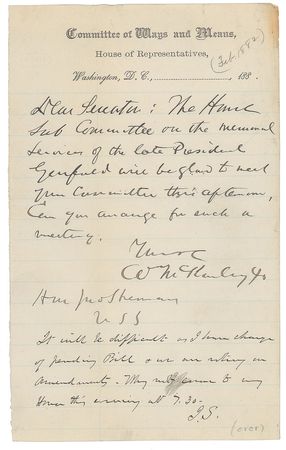 Committee of Ways and Means,
House of Representatives,
(Feb. 1882)
Washington, D. C., ..............................., 188 .
Dear Senator: The House
Sub Committee on the memorial
services of the late President
Garfield will be glad to meet
your Committee this afternoon,
Can you arrange for such a
meeting.
Yours &c
W McKinley Jr
Hon Jno Sherman
U S S
It will be difficult as I have charge
of pending Bill & we are voting on
amendments. Why not come to my
house this evening at 7.30-
J.S.
(over)